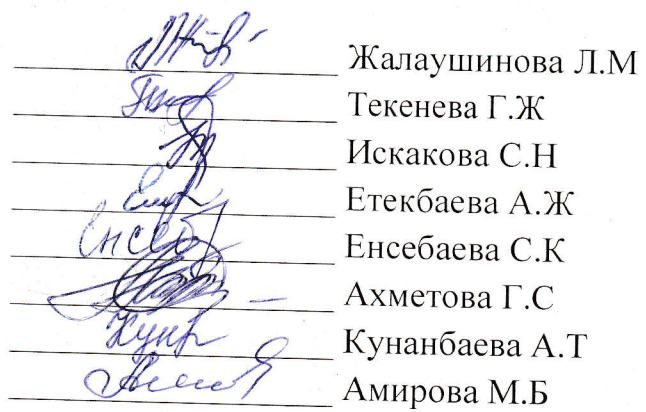 Жалаушинова Л.М
Текенева Г.Ж
Искакова С.Н
Етекбаева А.Ж
Енсебаева С.К
Ахметова Г.С
Кунанбаева А.Т
Амирова М.Б